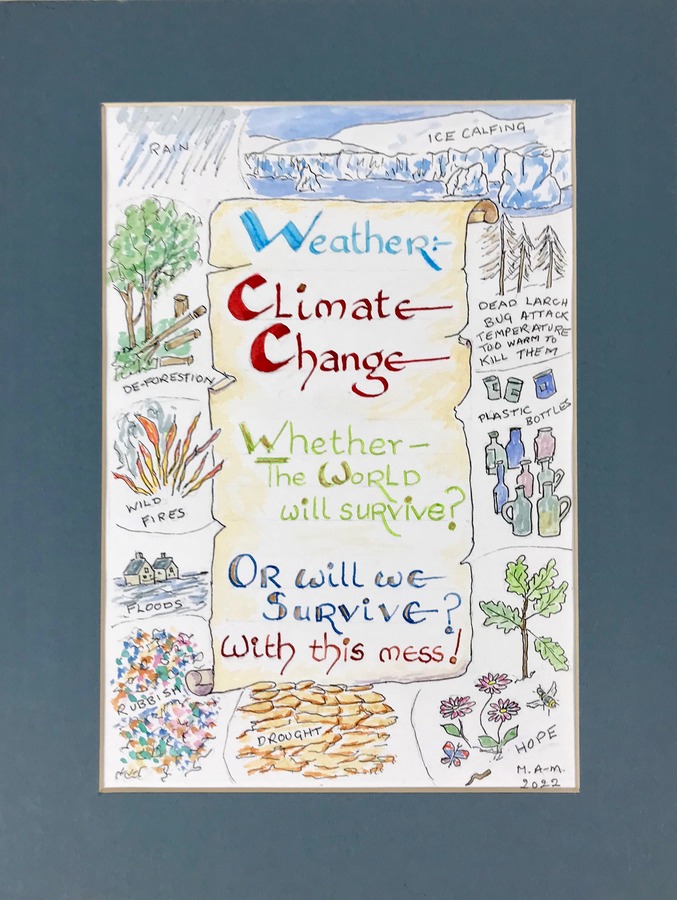 RAIN
ICE CALFING
Weather:-
Climate
Change
Whether-
The World
will survive?
Or will we
Survive?
with this mess!
DE-FORESTION
WILD
FIRES
FLOODS
RUBBISH
DROUGHT
DEAD LARCH
BUG ATTACK
TEMPERATURE
TOO WARM TO
KILL THEM
PLASTIC BOTTLES
HOPE
M.A-M.
2022